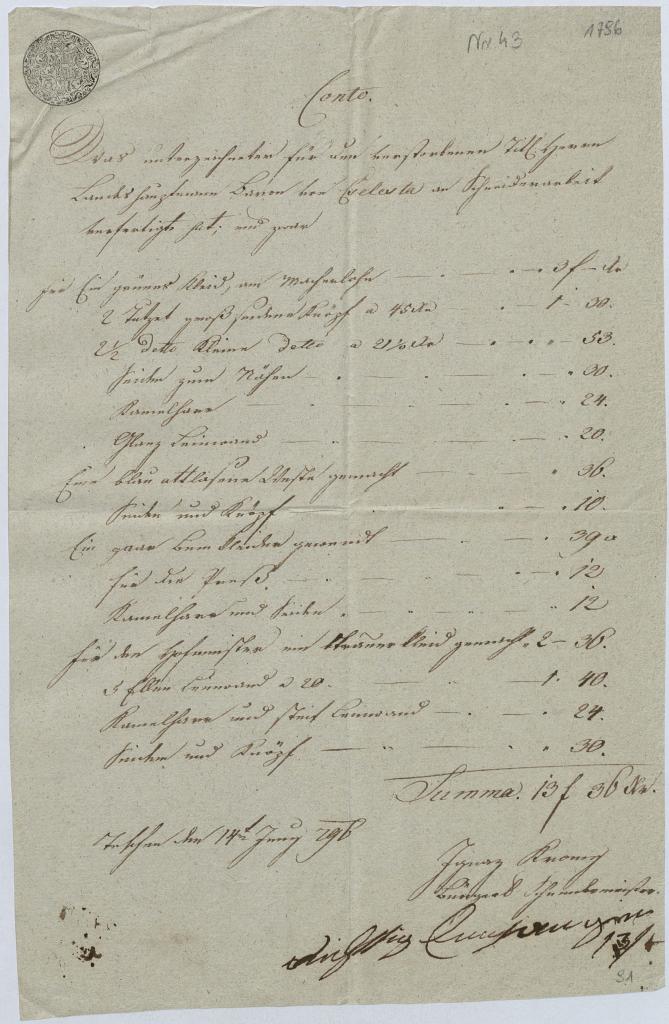 Nr. 43 1796
Conto.
Was unterzeichneter für den verstorbenen Titl. Herrn
Landeshauptmann Baron von Cselesta an Schneiderarbeit
verfertigt hat; und zwar
für Ein grünes Kleid, am Macherlohn — 3 f — Xr
2 Tutzet groß seidene Knöpf a 45 Xr — 1 — 30.
2 1/2 detto Kleine detto a 21 Xr — 53.
Seiden zum Nähen — 30.
Kamelhaar — 24.
Glanz Leinwand — 20.
Eine blau attlasene Weste gemacht — 36.
Seiden und Knöpf — 10.
Ein paar Beinkleider gewendt — 39
für die — 12
Kamelhaar und Seiden — 12
für den Hofmeister ein Trauerkleid gemacht 2 — 36.
5 Ellen Leinwand a 20. — 1. 40.
Kamelhaar und steif Leinwand — 24.
Seiden und Knöpf — 30.
Summa. 13 f 36 Xr.
Teschen den 14t Juny 796
Ignaz
Bürgerl. Schneidermeister.
Richtig
31